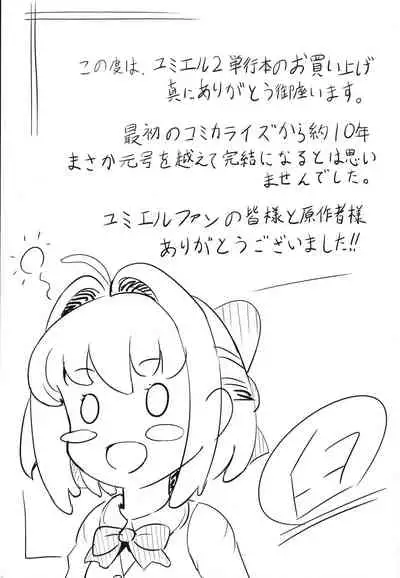 この度は、ユミエル2単行本のお買い上げ
真にありがとう御座います。
最初のコミカライズから約10年
まさか元号を越えて完結になるとは思い
ませんでした。
ユミエルファンの皆様と原作者様
ありがとうございました!!